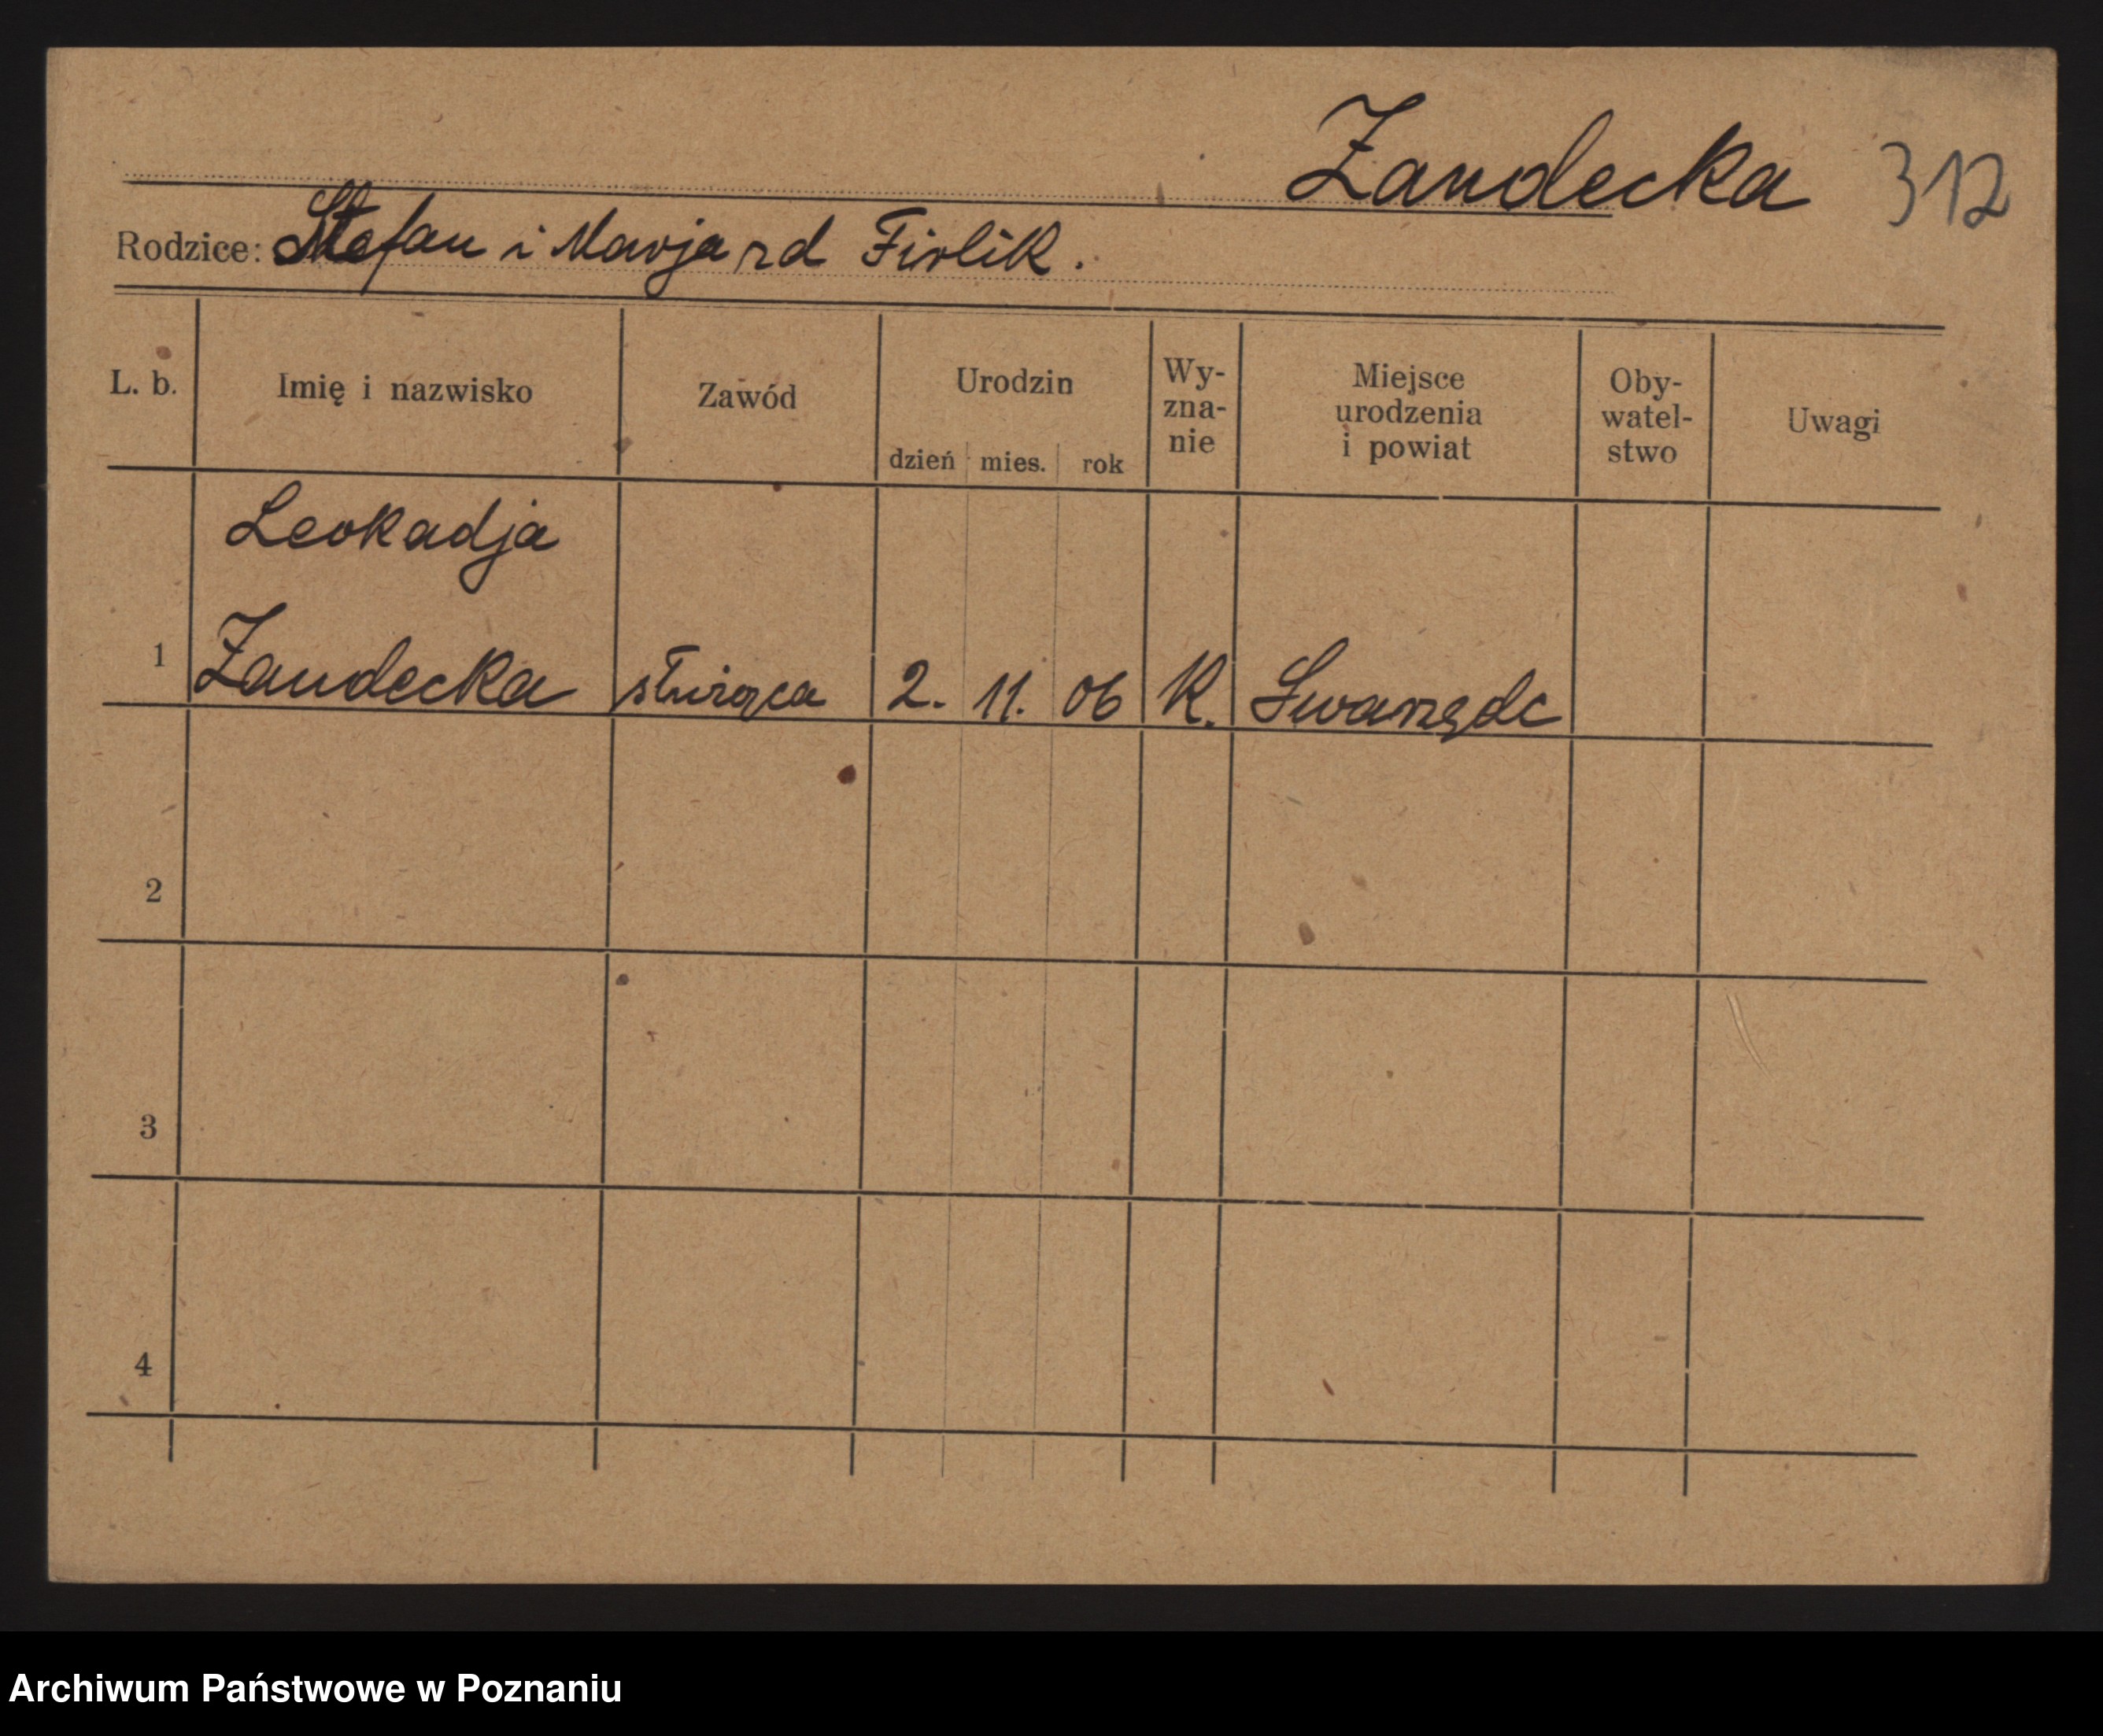 Żandecka 312
Rodzice: Stefan i Marja rd Firlik.
L. b. Imię i nazwisko Zawód Urodzin dzień mies. rok Wy-zna-nie Miejsce urodzenia i powiat Oby-watel-stwo Uwagi
Leokadja
1 Żandecka służąca 2. 11. 06 K. Swarzędz
2
3
4
Archiwum Państwowe w Poznaniu